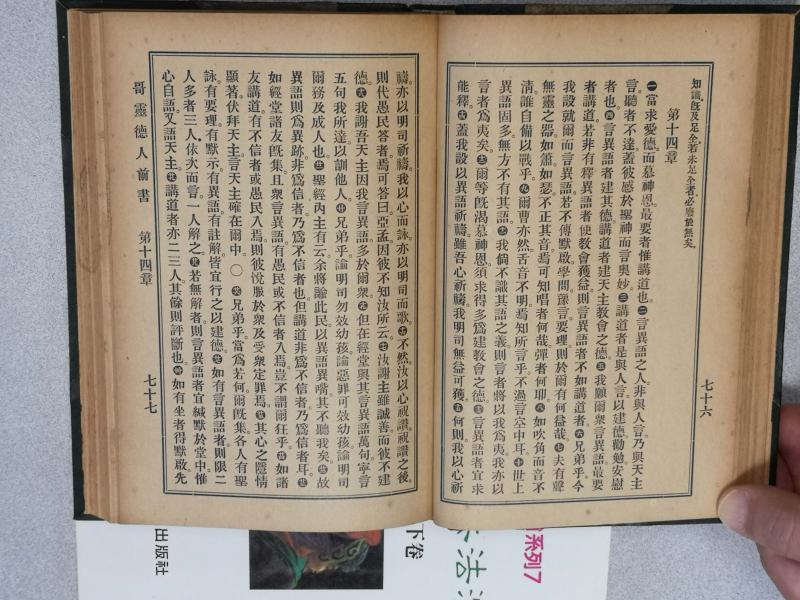 知識既及足全若未足全者必廢於無矣。
第十四章
㊀當求愛德而慕神恩最要者惟講道也。㊁言異語之人非與人言乃與天主
言聽者不達蓋彼感於聖神而言奧妙。㊂講道者是與人言以建德勸勉安慰
者也。㊃言異語者建其德講道者建天主教會之德。㊄我願爾衆言異語最要
者講道若非有釋異語者使教會獲益則言異語者不如講道者。㊅兄弟乎今
我設就爾而言異語若不傳默啟學問豫言要理則於爾有何益哉。㊆夫有聲
無靈之器如簫如瑟不正其音焉可知唱者何哉彈者何耶。㊇如吹角而音不
清誰自備以戰乎。㊈爾曹亦然舌音不明焉知所言乎不過言空中耳。㊉世上
異語固多無方不有其語。⑪我倘不識其語之義則言者將以我爲夷我亦以
言者爲夷矣。⑫爾等既渴慕神恩須求得多爲建教會之德。⑬言異語者宜求
能釋。⑭蓋我設以異語祈禱雖吾心祈禱我明司無益可獲。⑮何則我以心祈
七十六
禱亦以明司祈禱我以心而詠亦以明司而歌。⑯不然汝以心祝讚祝讚之後。
則代愚民答者焉可答曰亞孟因彼不知汝所云。⑰汝謝主雖誠善而彼不建
德。⑱我謝吾天主因我言異語多於爾衆。⑲但在經堂與其言異語萬句寧言
五句我所達以訓他人。⑳兄弟乎論明司勿效幼孩論惡罪可效幼孩論明司
爾務及成人也。㉑聖經內主有云余將諭此民以異語異嘴其不聽我矣。㉒故
異語則爲異跡非爲信者乃爲不信者也但講道非爲不信者乃爲信者耳。㉓
如經堂諸友既集且衆言異語有愚民或不信者入焉豈不謂爾狂乎。㉔如諸
友講道有不信者或愚民入焉則彼悅服於衆及受衆定罪焉。㉕其心之隱情
顯著伏拜天主言天主確在爾中。〇㉖兄弟乎當爲若何爾既集各人有聖
詠有要理有默示有異語有註解皆宜行之以建德。㉗如有言異語者則限二
人多者三人依次而言一人解之。㉘若無解者則言異語者宜緘默於堂中惟
心自語又語天主。㉙講道者亦二三人其餘則評斷也。㉚如有坐者得默啟先
哥靈德人前書
第十四章
七十七
出版社
下卷
系列7